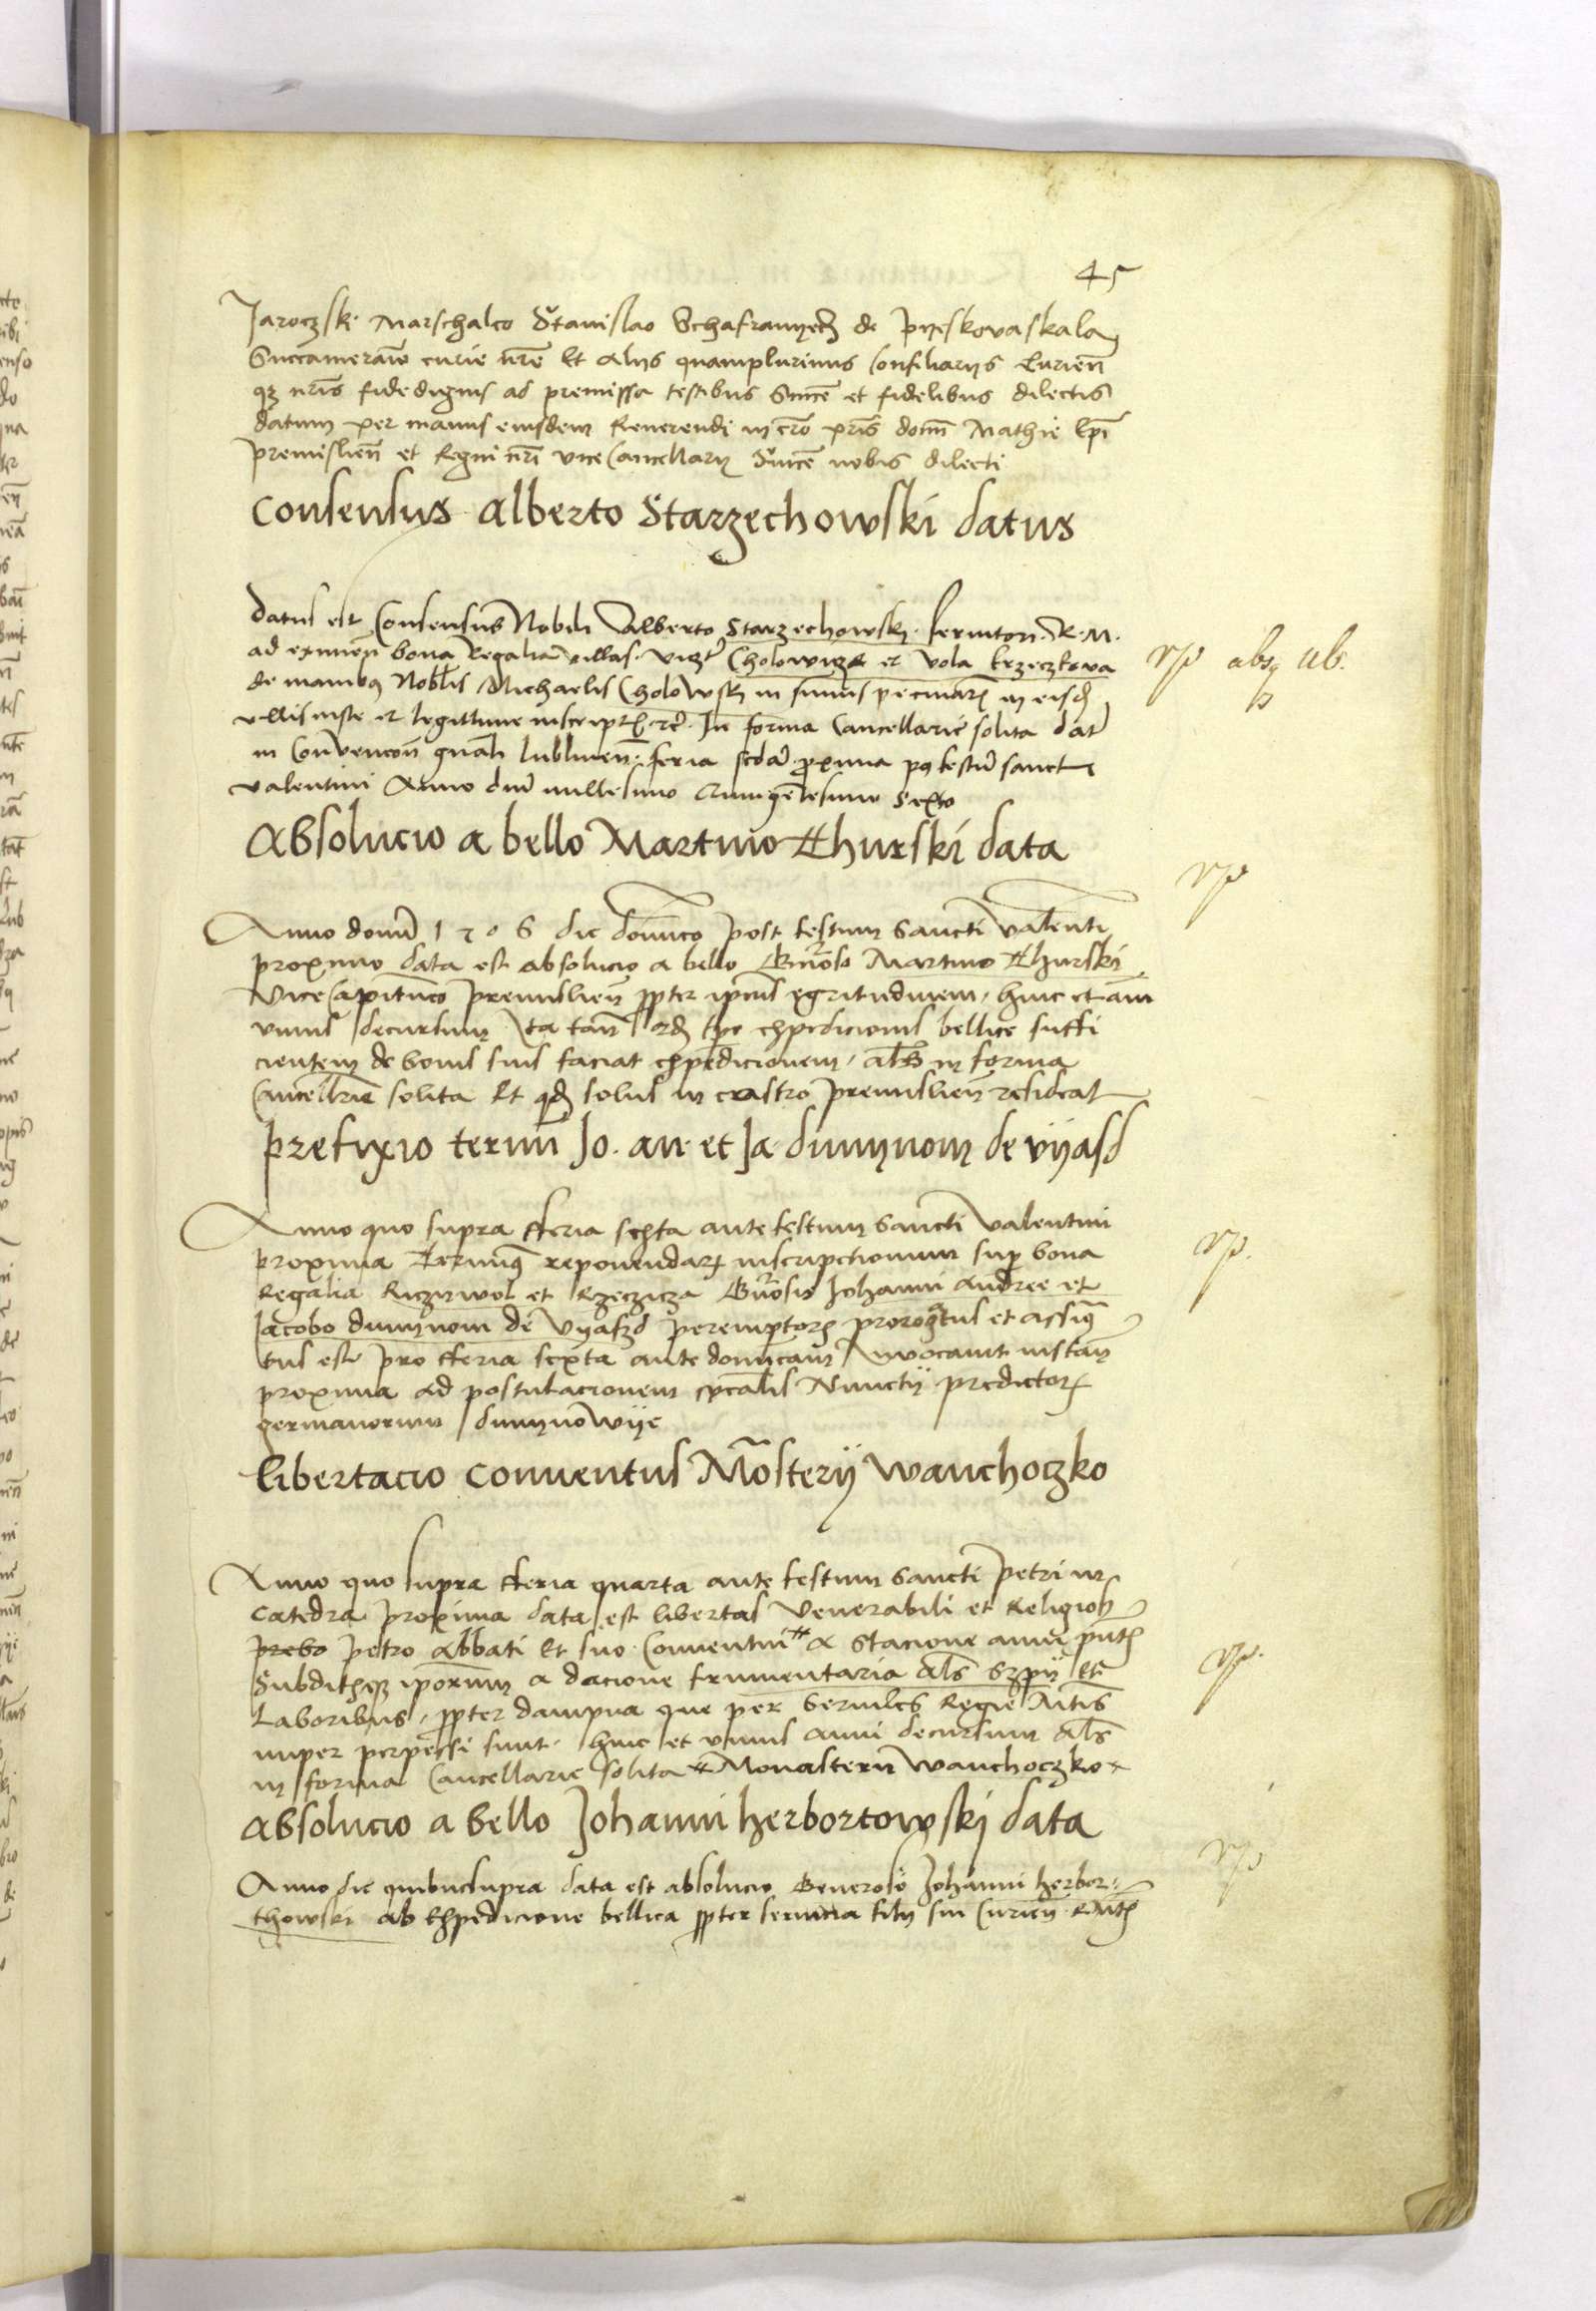 45
Jaroczski Marschalco Stanislao Schafranyecz de Pyeskovaskala
Succamerario curie nre Et alys quamplurimis Consiliarys Curien
qz nris fidedignis ad premissa testibus Sincere et fidelibus dilectis
datum per manus eiusdem Reverendi in cro pris domi Mathie Epi
Premislien et Regni nri vice Cancellary Sincere nobis dilecti
Consensus Alberto Starzechowski datus
Datus est Consensus Nobili Alberto Starzechowski servitori R. M.
ad eximen bona Regalia villas vizt Cholowicze et Vola krzeczkova
de manibus Noblis Michaelis Cholowski in sumis pecuniar in eisd
villis iuste et legittime inscriptis etc In forma Cancellarie solita dat
in Convencon gnali lublinen feria scda proxima pq festu sancti
valentini Anno dni millesimo Quingentesimo Sexto
Absolucio a bello Martino Churski data
Anno domi 1506 die dominico post festum Sancti Valenti
proximo data est absolucio a bello Gnoso Martino Churski
Vice Capitaneo Premislien ppter ipsius egritudinem hinc et ani
unius decursum Ita tam qd tpe expedicionis bellice suffi
cientem de bonis suis faciat expedicionem als in forma
Cancellrie solita Et qd solus in castro Premislien resideat
Prefixio termi Jo. an et Ja dunynom de vyasd
Anno quo supra fferia sexta ante festum Sancti Valentini
proxima Terminus reponendar inscripctionum sup bona
Regalia Riczywol et Rzeczicza Gnosis Johanni Andree et
Jacobo dunynom de Vyaszd peremptor prorogatus et assig
tus est pro fferia sexta ante dominicam Invocavit instan
proxima ad postulacionem spealis Nunctij predictor
germanorum dunynowije
Libertacio Conventus Mosterij Wanchoczko
Anno quo supra fferia quarta ante festum Sancti Petri in
Catedra proxima data est libertas Venerabili et Religioso
Petro Abbati Et suo Conventui a Stacione anni pntis
Subditisqz iporum a dacione frumentaria als Szpij Et
Laboribus ppter dampna que per Serviles Regie Mtis
nuper perpessi sunt hinc et unius anni decursum als
in forma Cancellarie solita Monasterii Wanchoczko
Absolucio a bello Johanni herbortowski data
Anno die quibus supra data est absolucio Generoso Johanni herbor
thowski ab Expedicione bellica ppter servicia filij sui Curien R Mtis